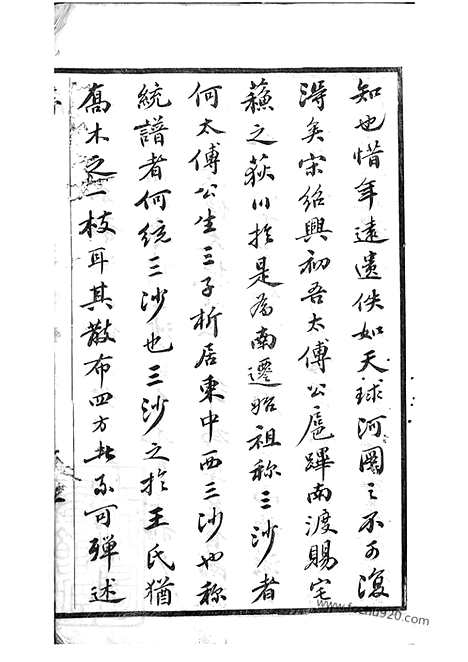 知也惜年遠遺佚如天球河圖之不可復
得矣宋紹興初吾太傅公扈蹕南渡賜宅
蘓之荻川於是為南遷始祖称三沙者
何太傅公生三子析居東中西三沙也称
統譜者何統三沙也三沙之於王氏猶
喬木之一枝耳其散布四方者不可殫述